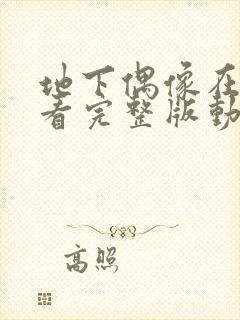 地下偶像在
看完整版動
高照